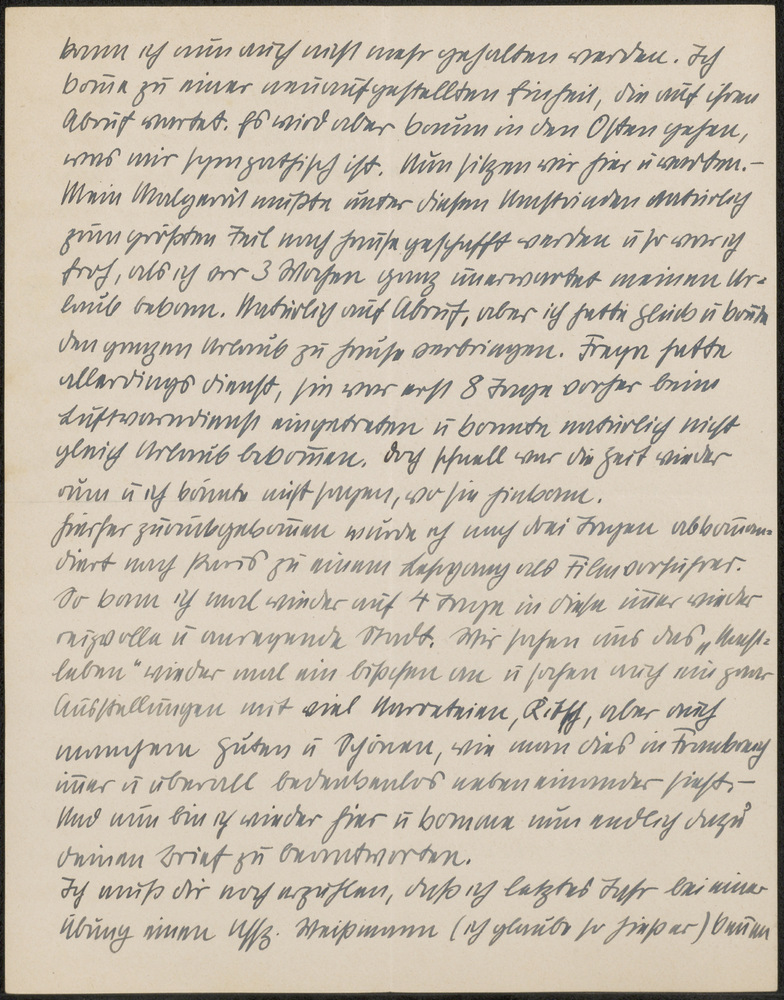 kann ich nun auch nicht mehr gehalten werden. Ich
kom̄e zu einer neuaufgestellten Einheit, die auf ihren
Abruf wartet. Es wird aber kaum in den Osten gehen,
was mir sympathisch ist. Nun sitzen wir hier u warten.–
Mein Malgerät mußte unter diesen Umständen natürlich
zum größten Teil nach Hause geschafft werden u so war ich
froh, als ich vor 3 Wochen ganz unerwartet meinen Ur-
laub bekam. Natürlich auf Abruf, aber ich hatte Glück u kon̄te
den ganzen Urlaub zu Hause verbringen. Freya hatte
allerdings Dienst, sie war erst 8 Tage vorher beim
Luftwarndienst eingetreten u konnte natürlich nicht
gleich Urlaub bekom̄en. Doch schnell war die Zeit wieder
rum u ich könnte nicht sagen, wo sie hinkam.
Hierher zurückgekom̄en wurde ich nach drei Tagen abkom̄an-
diert nach Paris zu einem Lehrgang als Filmvorführer.
So kam ich mal wieder auf 4 Tage in diese im̄er wieder
reizvolle u anregende Stadt. Wir sahen uns das „Nacht-
leben“ wieder mal ein bißchen an u sahen auch ein paar
Ausstellungen mit viel Narreteien, Kitsch, aber auch
manchem Guten u Schönen, wie man dies in Frankreich
im̄er u überall bedenkenlos nebeneinander sieht.–
Und nun bin ich wieder hier u komme nun endlich dazu
deinen Brief zu beantworten.
Ich muß dir noch erzählen, daß ich letztes Jahr bei einer
Übung einen Uffz. Weißmann (ich glaube so hieß er) kennen